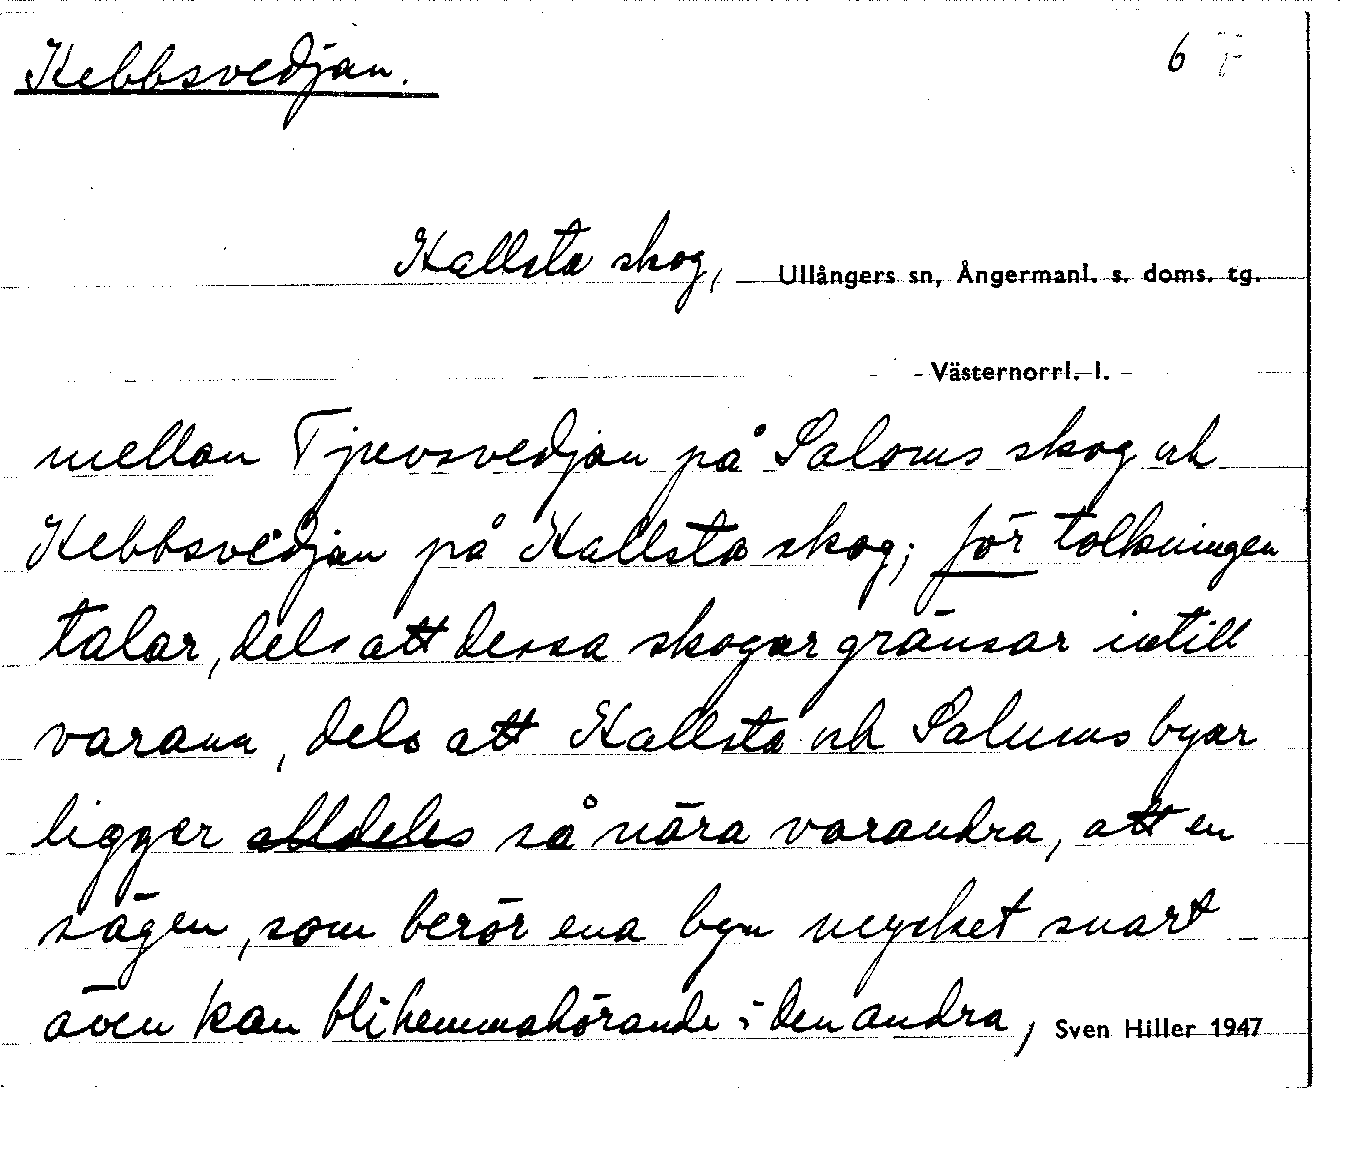 Kebbsvedjan.
6
Kallsta skog,
Ullångers sn, Ångermanl. s. doms. tg.
Västernorrl. l.
mellan Tjuvsvedjan på Saloms skog och
Kebbsvedjan på Kallsta skog; för tolkningen
talar, dels att dessa skogar gränsar intill
varann, dels att Kallsta och Salums byar
ligger alldeles så nära varandra, att en
sägen, som berör ena byn mycket snart
även kan bli hemmahörande i den andra,
Sven Hiller 1947